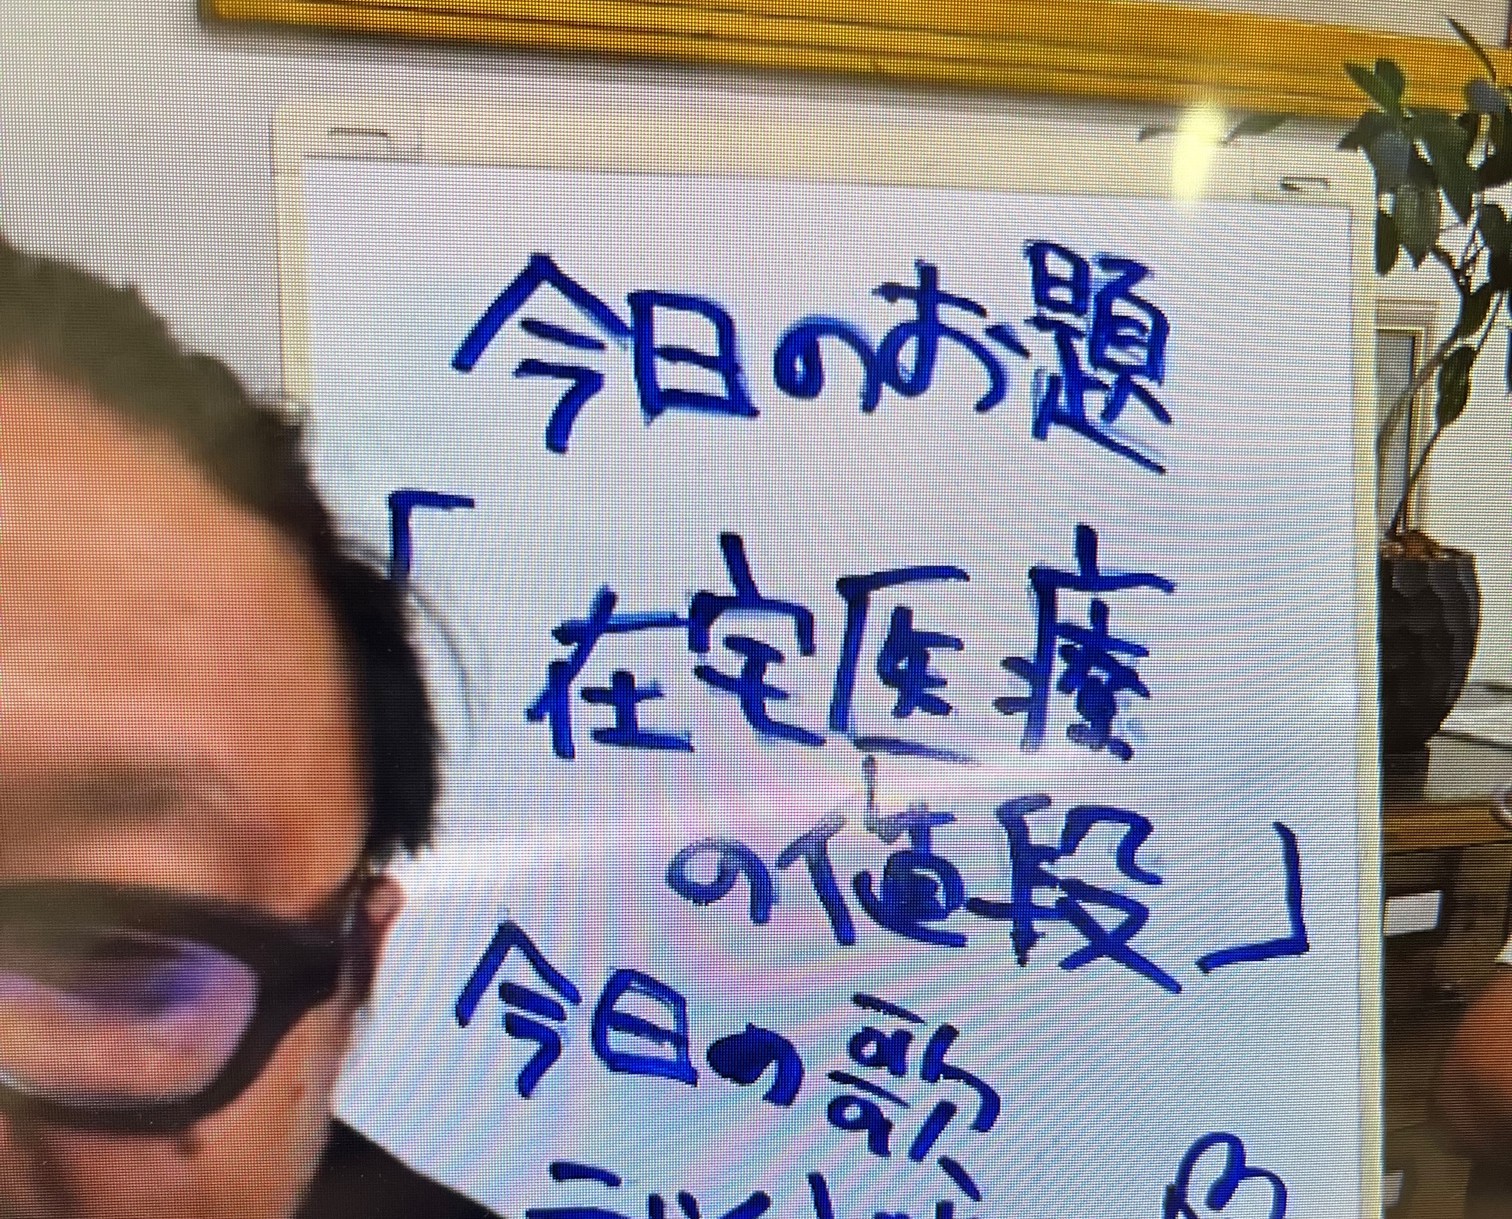 今日のお題
「在宅医療
の値段」
今日の歌